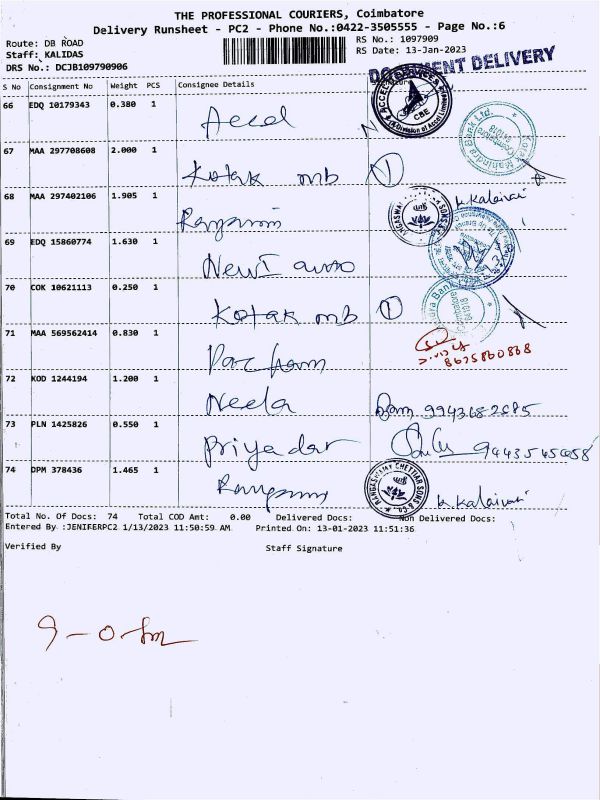 THE PROFESSIONAL COURIERS, Coimbatore
Delivery Runsheet - PC2 - Phone No.:0422-3505555 - Page No.:6
Route: DB ROAD
RS No.: 1097909
Staff: KALIDAS
RS Date: 13-Jan-2023
DRS No.: DCJB109790906
DOCUMENT DELIVERY
S No Consignment No Weight PCS Consignee Details
66 EDQ 10179343 0.380 1 Accel
67 MAA 297708608 2.000 1 Kotak mb 1
68 MAA 297402106 1.905 1 K. Kalaivai
69 EDQ 15860774 1.630 1
70 COK 10621113 0.250 1 Kotak mb 1
71 MAA 569562414 0.830 1
72 KOD 1244194 1.200 1 Neela
73 PLN 1425826 0.550 1 Priyadar
74 DPM 378436 1.465 1 RANGASWAMY CHETTIAR SONS & CO.
Total No. Of Docs: 74 Total COD Amt: 0.00 Delivered Docs: Non Delivered Docs:
Entered By :JENIFERPC2 1/13/2023 11:50:59 AM Printed On: 13-01-2023 11:51:36
Verified By Staff Signature